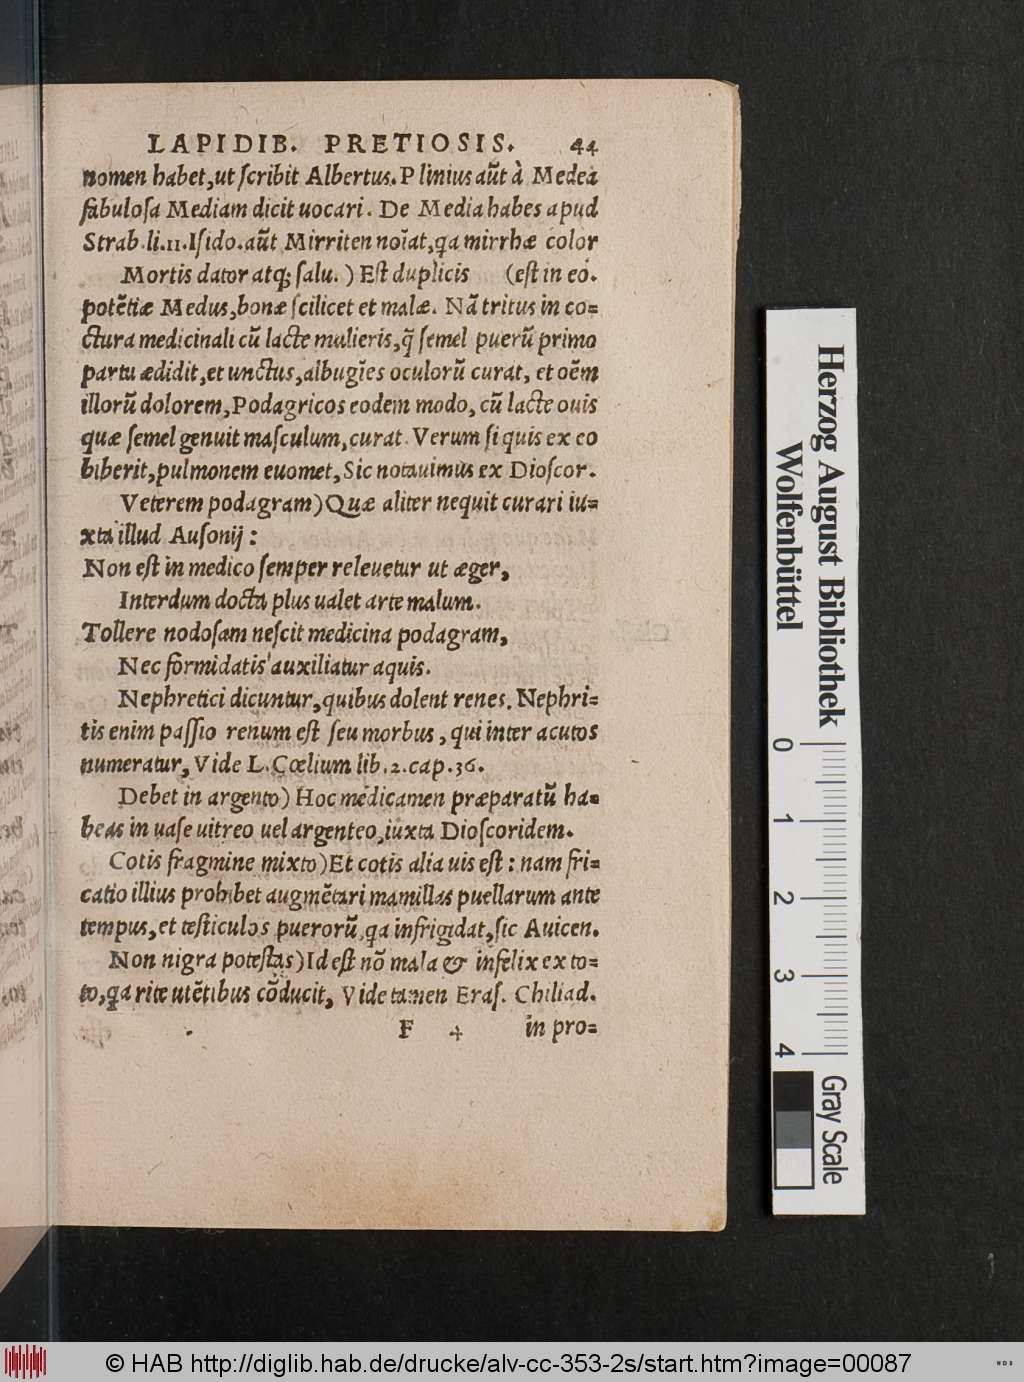 LAPIDIB. PRETIOSIS. 44
nomen habet, ut ſcribit Albertus. Plinius aūt à Medea
fabuloſa Mediam dicit uocari. De Media habes apud
Strab. li. 11. Iſido. aūt Mirriten noīat, qa mirrhæ color
Mortis dator atq; ſalu. ) Eſt duplicis (eſt in eo.
potẽtiæ Medus, bonæ ſcilicet et malæ. Nã tritus in co=
ctura medicinali cū lacte mulieris, q̃ ſemel puerū primo
partu ædidit, et unctus, albugīes oculorū curat, et oẽm
illorū dolorem, Podagricos eodem modo, cū lacte ouis
quæ ſemel genuit maſculum, curat. Verum ſi quis ex eo
biberit, pulmonem euomet, Sic notauimus ex Dioſcor.
Veterem podagram) Quæ aliter nequit curari iu=
xta illud Auſonij :
Non eſt in medico ſemper releuetur ut æger,
Interdum docta plus ualet arte malum.
Tollere nodoſam neſcit medicina podagram,
Nec formidatis auxiliatur aquis.
Nephretici dicuntur, quibus dolent renes. Nephri=
tis enim paſſio renum eſt ſeu morbus, qui inter acutos
numeratur, Vide L. Cœlium lib. 2. cap. 36.
Debet in argento) Hoc medicamen præparatū ha=
beas in uaſe uitreo uel argenteo, iuxta Dioſcoridem.
Cotis fragmine mixto) Et cotis alia uis eſt : nam fri=
catio illius prohibet augmẽtari mamillas puellarum ante
tempus, et teſticulos puerorū, qa infrigidat, ſic Auicen.
Non nigra poteſtas) Id eſt nõ mala & infelix ex to=
to, qa rite utẽtibus cõducit, Vide tamen Eraſ. Chiliad.
F 4 in pro=
Herzog August Bibliothek
Wolfenbüttel
0
1
2
3
4
Gray Scale
© HAB http://diglib.hab.de/drucke/alv-cc-353-2s/start.htm?image=00087